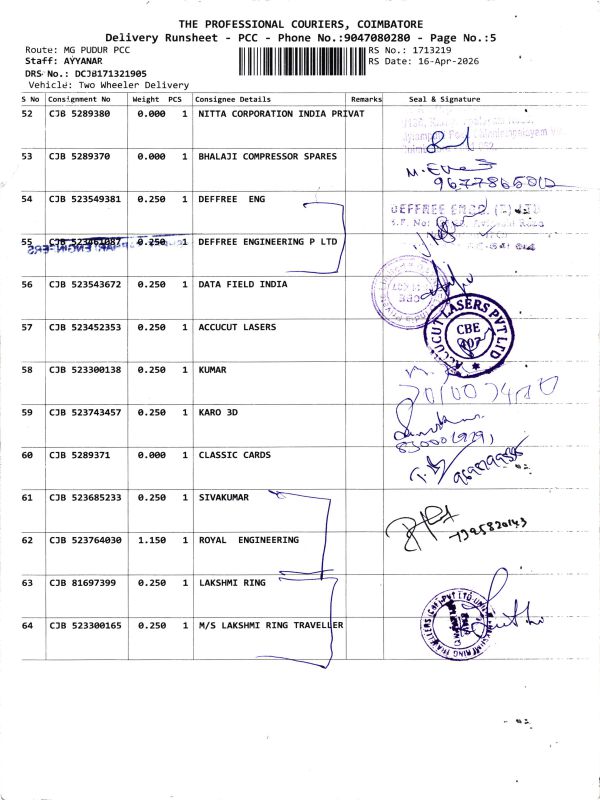 THE PROFESSIONAL COURIERS, COIMBATORE
Delivery Runsheet - PCC - Phone No.:9047080280 - Page No.:5
Route: MG PUDUR PCC
Staff: AYYANAR
DRS No.: DCJB171321905
Vehicle: Two Wheeler Delivery
RS No.: 1713219
RS Date: 16-Apr-2026
S No Consignment No Weight PCS Consignee Details Remarks Seal & Signature
52 CJB 5289380 0.000 1 NITTA CORPORATION INDIA PRIVAT
53 CJB 5289370 0.000 1 BHALAJI COMPRESSOR SPARES
54 CJB 523549381 0.250 1 DEFFREE ENG
DEFFREE ENGG. (P) LTD
55 CJB 523461087 0.250 1 DEFFREE ENGINEERING P LTD
56 CJB 523543672 0.250 1 DATA FIELD INDIA
57 CJB 523452353 0.250 1 ACCUCUT LASERS
ACCUCUT LASERS PVT LTD
CBE
58 CJB 523300138 0.250 1 KUMAR
59 CJB 523743457 0.250 1 KARO 3D
60 CJB 5289371 0.000 1 CLASSIC CARDS
61 CJB 523685233 0.250 1 SIVAKUMAR
7395820143
62 CJB 523764030 1.150 1 ROYAL ENGINEERING
63 CJB 81697399 0.250 1 LAKSHMI RING
64 CJB 523300165 0.250 1 M/S LAKSHMI RING TRAVELLER